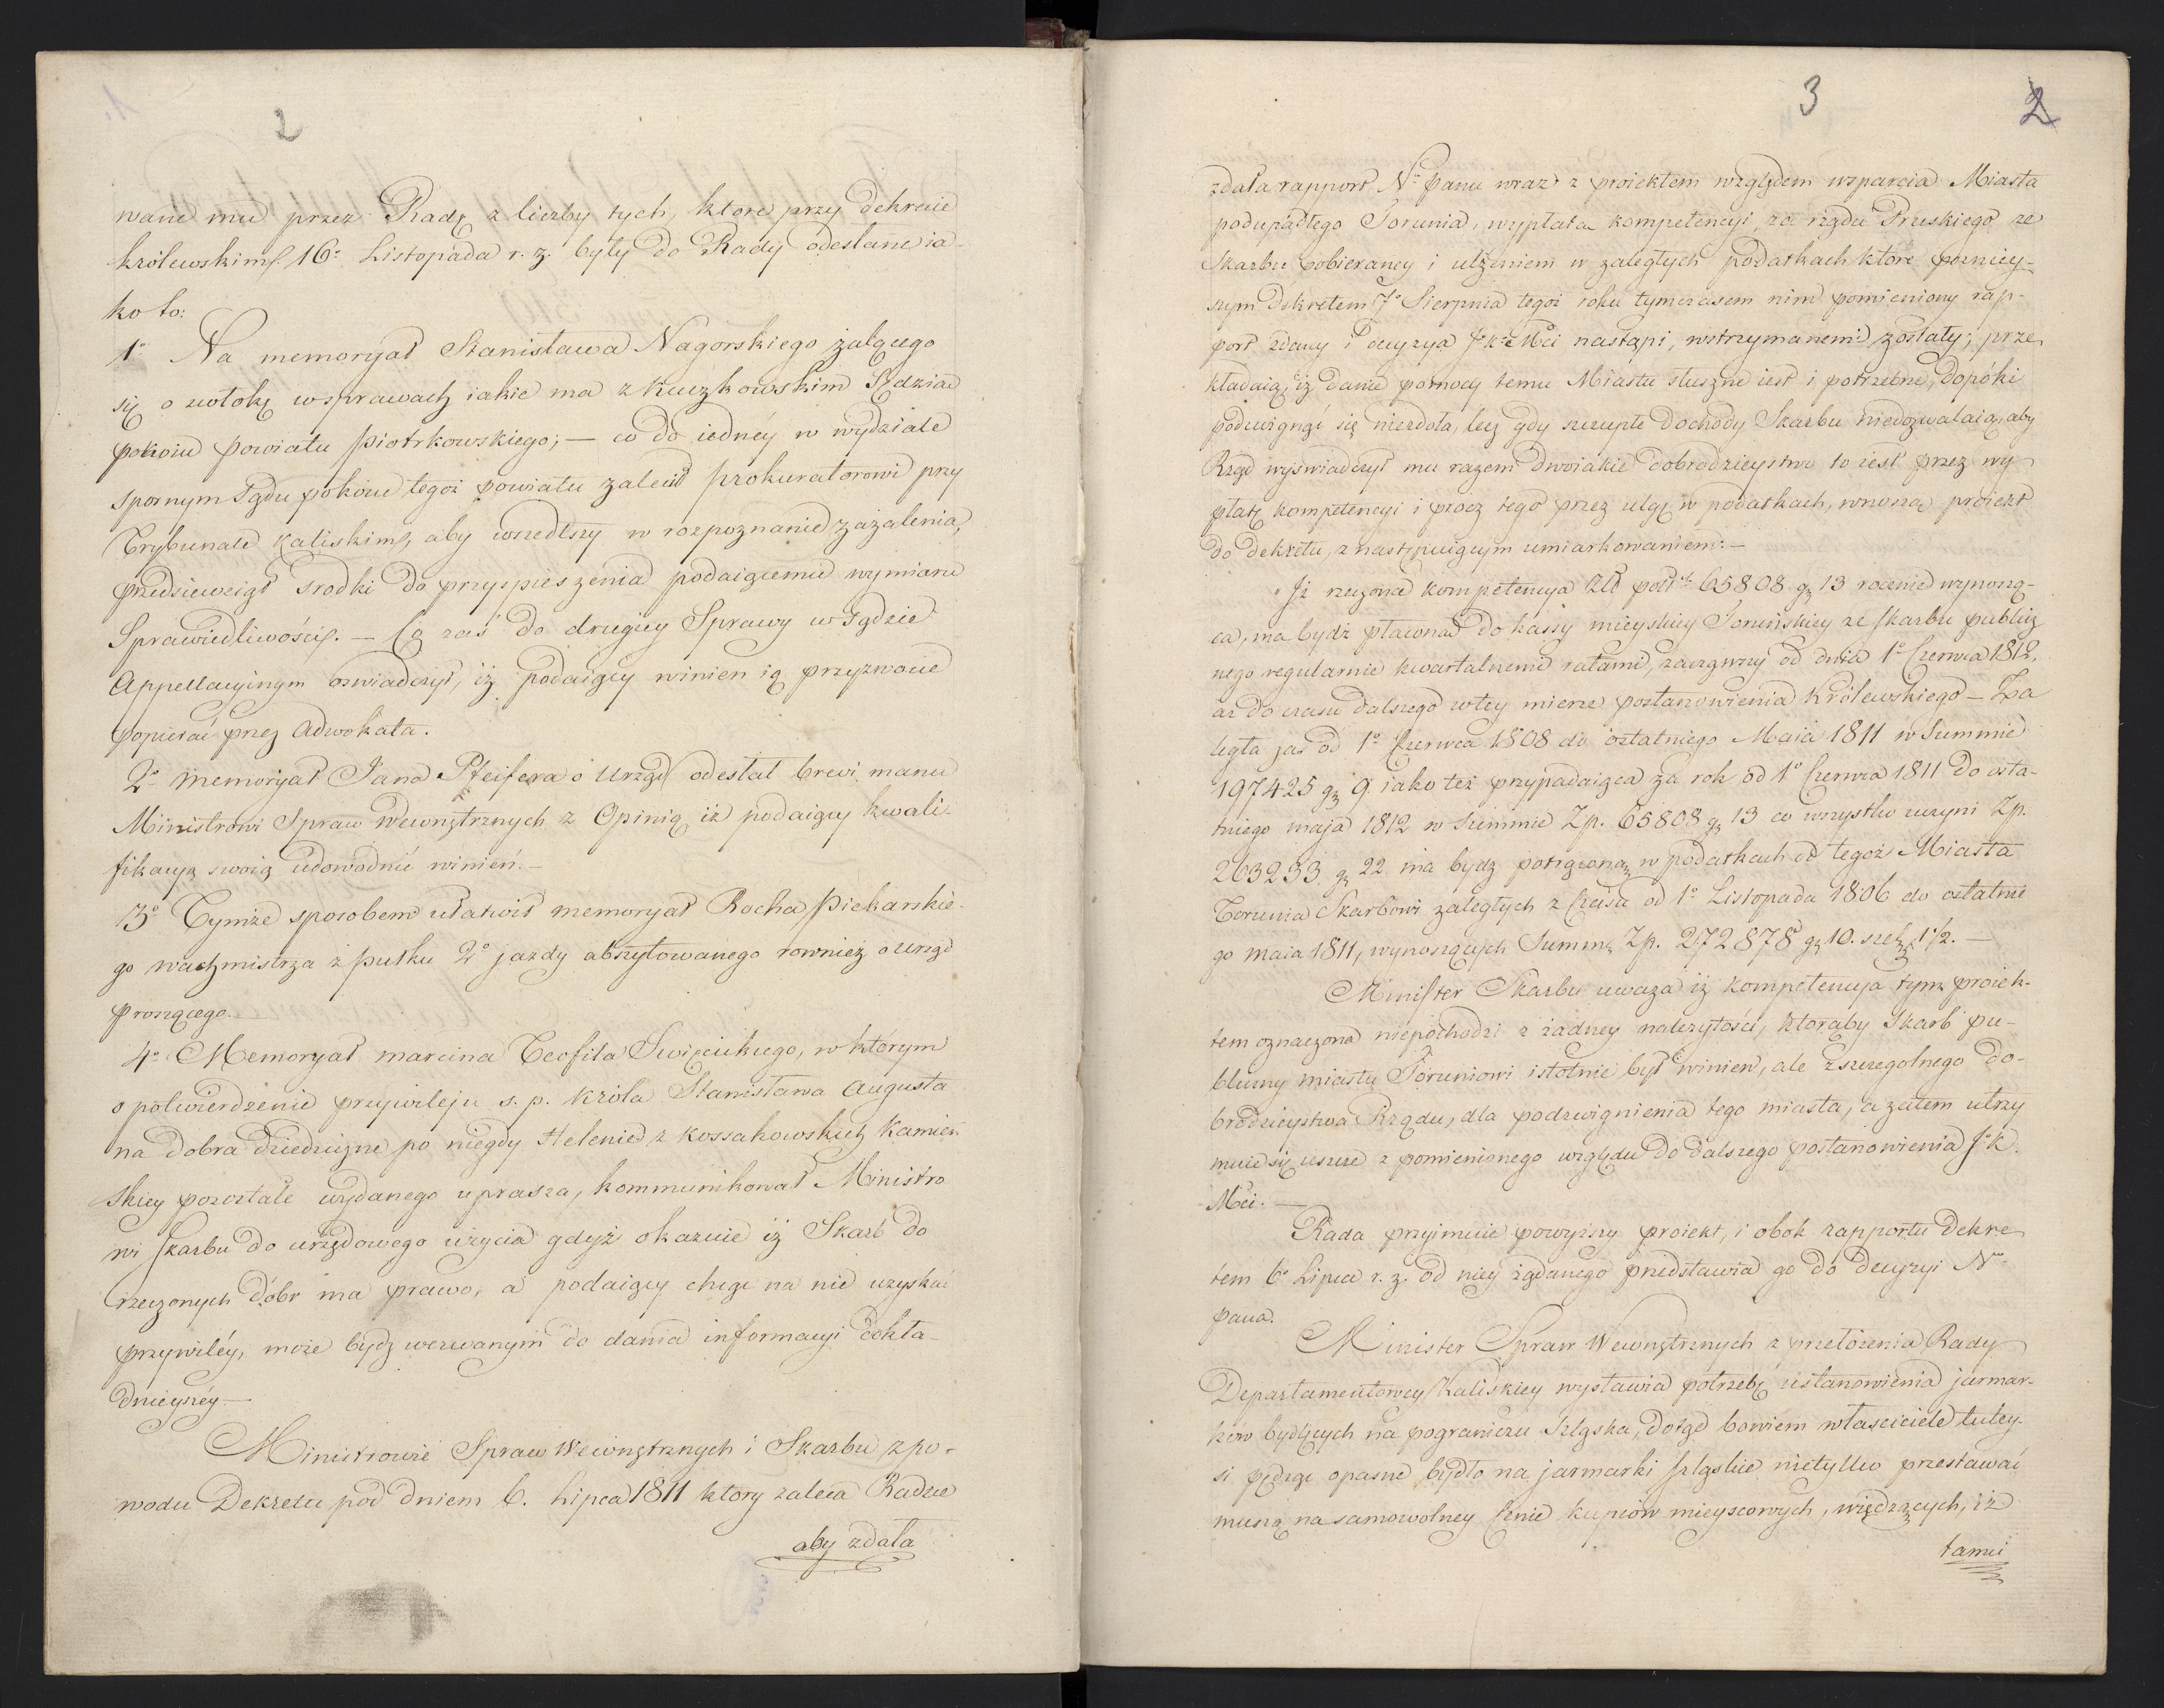 2
wane mu przez Radę z liczby tych, ktore przy dekrecie
królewskim 16° Listopada r. z. były do Rady odesłane ia-
ko to:
1° Na memoryał Stanisława Nagorskiego żalącego
się o zwłokę w sprawach iakie ma z Kuczkowskim Sędzią
pokoiu powiatu piotrkowskiego; — co do iednéy w wydziale
spornym Sądu pokoiu tegoż powiatu zalecił prokuratorowi przy
Trybunale Kaliskim, aby wszedłszy w rozpoznanie zażalenia,
przedsiewziął srodki do przyspieszenia podaiącemu wymiaru
Sprawiedliwości. — Co zaś do drugiey Sprawy w Sądzie
Appellacyinym oswiadczył, iż podaiący winien ią przyzwoicie
popierać przez Adwokata.
2° memoryał Jana Pfeifera o Urząd odesłał brevi manu
Ministrowi Spraw Wewnętrznych z Opinią iż podaiący kwali-
fikacyą swoią udowodnić winien. —
3° Tymże sposobem ułatwił memoryał Rocha Piekarskie-
go wachmistrza z pułku 2° jazdy abszytowanego rownież o urząd
proszącego.
4° Memoryał marcina Teofila Swięcickiego, w którym
o potwierdzenie przywileju s. p. króla Stanisława Augusta
na dobra dziedziczne po niegdy Helenie z Kossakowskich Kamień
skiey pozostałe wydanego uprasza, kommunikował Ministro
wi skarbu do urzędowego użycia gdyż okazuie iż Skarb do
rzeczonych dóbr ma prawo, a podaiący chcąc na nie uzyskać
przywiléy, może bydź wezwanym do dania informacyi dokła-
dnieyszéy —
Ministrowie Spraw Wewnętrznych i Skarbu z po-
wodu Dekretu pod dniem 6. Lipca 1811 ktory zaleca Radzie
aby zdała
3
2
zdała rapport N° panu wraz z proiektem względem wsparcia Miasta
podupadłego Torunia, wypłatą kompetencyi, za rządu Pruskiego ze
Skarbu pobieraney i ulżeniem w zaległych podatkach które poźniey-
szym dekretem 7° Sierpnia tegoż roku tymczasem nim pomieniony rap-
port zdany i decyzya J K Mci nastąpi, wstrzymanemi zostały; prze
kładaią, iż danie pomocy temu Miastu słuszne iest i potrzebne, dopóki
podzwignąć się niezdoła, lecz gdy szczupłe dochody Skarbu niedozwalaią, aby
Rząd wyswiadczył mu razem dwoiakie dobrodzieystwo to iest przez wy
płatę kompetencyi i procz tego przez ulgę w podatkach, wnoszą proiekt
do dekretu, z następuiącym umiarkowaniem: —
"Jż rzeczona kompetencya Złł pols. 65808 gr 13 rocznie wynoszą-
ca, ma bydź płacona do kassy mieyskiey Toruńskiey ze skarbu publicz
nego regularnie kwartalnemi ratami, zacząwszy od dnia 1° Czerwca 1812,
aż do czasu dalszego w tey mierze postanowienia Królewskiego — Za
legła zaś od 1° Czerwca 1808 do ostatniego Maia 1811 w Summie
197425 gr 9 iako też przypadaiąca za rok od 1° Czerwca 1811 do osta-
tniego maja 1812 w Summie Zp. 65808 gr 13 co wszystko uczyni Zp.
263233 gr 22 ma bydź potrąconą w podatkach od tegoż Miasta
Torunia Skarbowi zaległych z Czasu od 1° Listopada 1806 do ostatnie
go maia 1811, wynoszących Summę Zp. 272878 gr 10. szel. 1½. —
Minister Skarbu uważa iż kompetencya tym proiek-
tem oznaczona niepochodzi z żadney należytości, ktorąby Skarb pu-
bliczny miastu Toruniowi istotnie był winien, ale z szczegolnego do-
brodzieystwa Rządu, dla podzwignienia tego miasta, a zatem utrzy
muie się ieszcze z pomienionego względu do dalszego postanowienia J K.
Mci. —
Rada przyimuie powyższy proiekt, i obok rapportu dekre
tem 6° Lipca r. z. od niey żądanego przedstawia go do decyzyi N°
pana.
Minister Spraw Wewnętrznych z przełożenia Rady
Departamentowey Kaliskiey wystawia potrzebę ustanowienia jarmar-
ków bydlęcych na pograniczu Szląska, dotąd bowiem własciciele tutey-
si pędząc opasne bydło na jarmarki szląskie nietylko przestawać
muszą na samowolney cenie kupców mieyscowych, wiedzących, iż
tamci